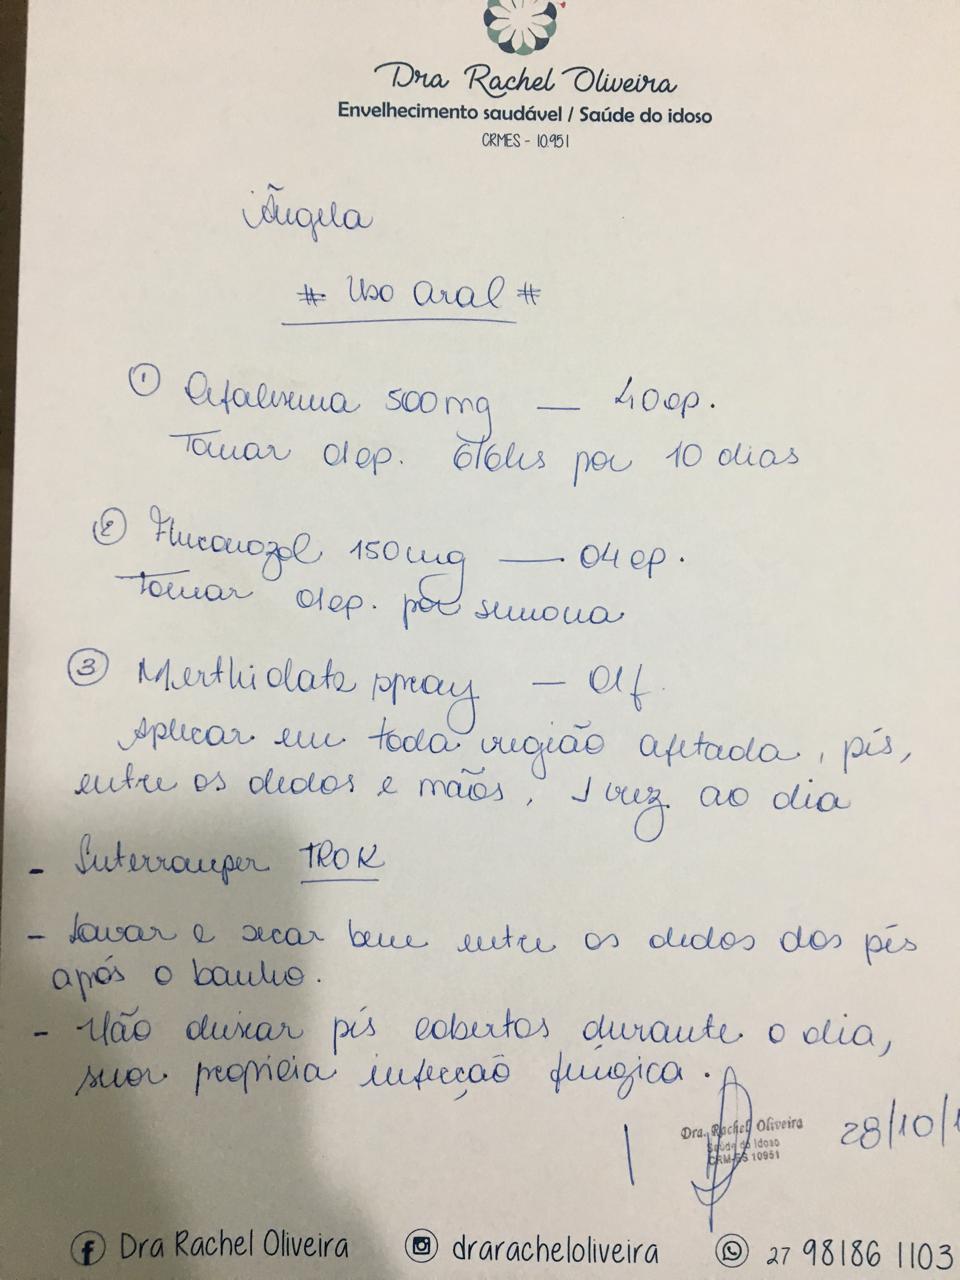 Dra Rachel Oliveira
Envelhecimento saudável / Saúde do idoso
CRMES - 10.951
Ângela
# Uso oral #
① Cefalexina 500mg — 40cp.
Tomar 01cp. 6/6hs por 10 dias
② Fluconazol 150mg — 04cp.
Tomar 01cp. por semana
③ Merthiolate spray — 01f.
Aplicar em toda região afetada, pés,
entre os dedos e mãos, 1 vez ao dia
- Interromper TROK
- Lavar e secar bem entre os dedos dos pés
após o banho.
- Não deixar pés cobertos durante o dia,
suor propicia infecção fúngica.
Dra. Rachel Oliveira
Saúde do Idoso
CRM-ES 10951
28/10/1
Dra Rachel Oliveira
draracheloliveira
27 98186 1103